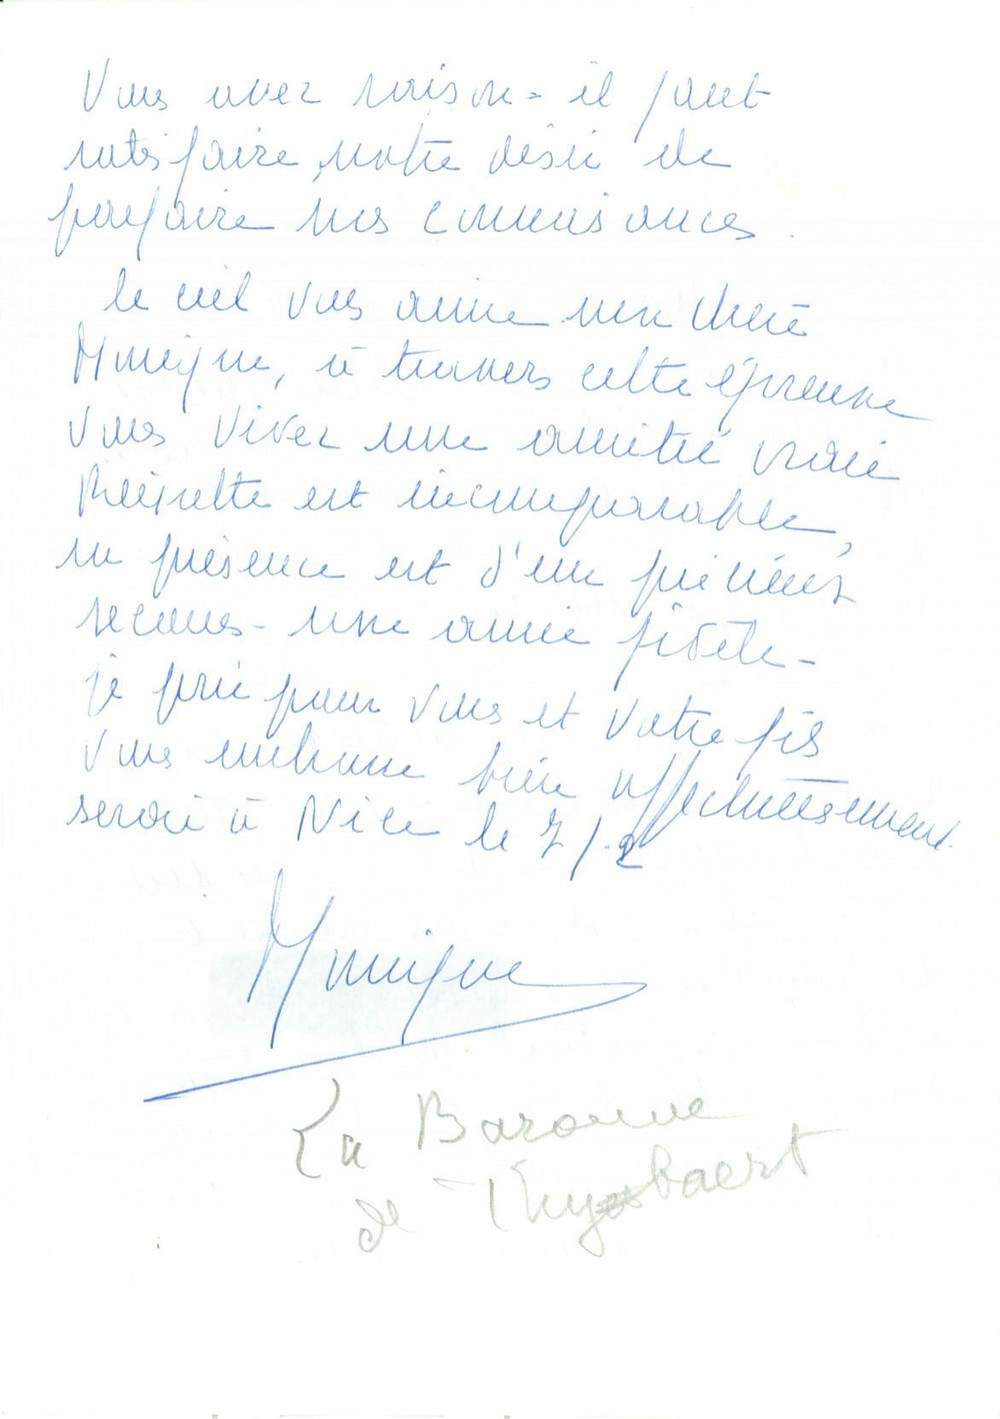 Vous avez raison - il faut
satisfaire notre désir de
parfaire nos connaissances.
le ciel vous aime ma chère
Monique, à travers cette épreuve
vous vivez une amitié vraie
est incomparable,
sa présence est d'un précieux
secours - une amie fidèle -
je prie pour vous et votre fils
vous embrasse bien affectueusement
serai à Nice le 7/.2
Monique
La Baronne
de